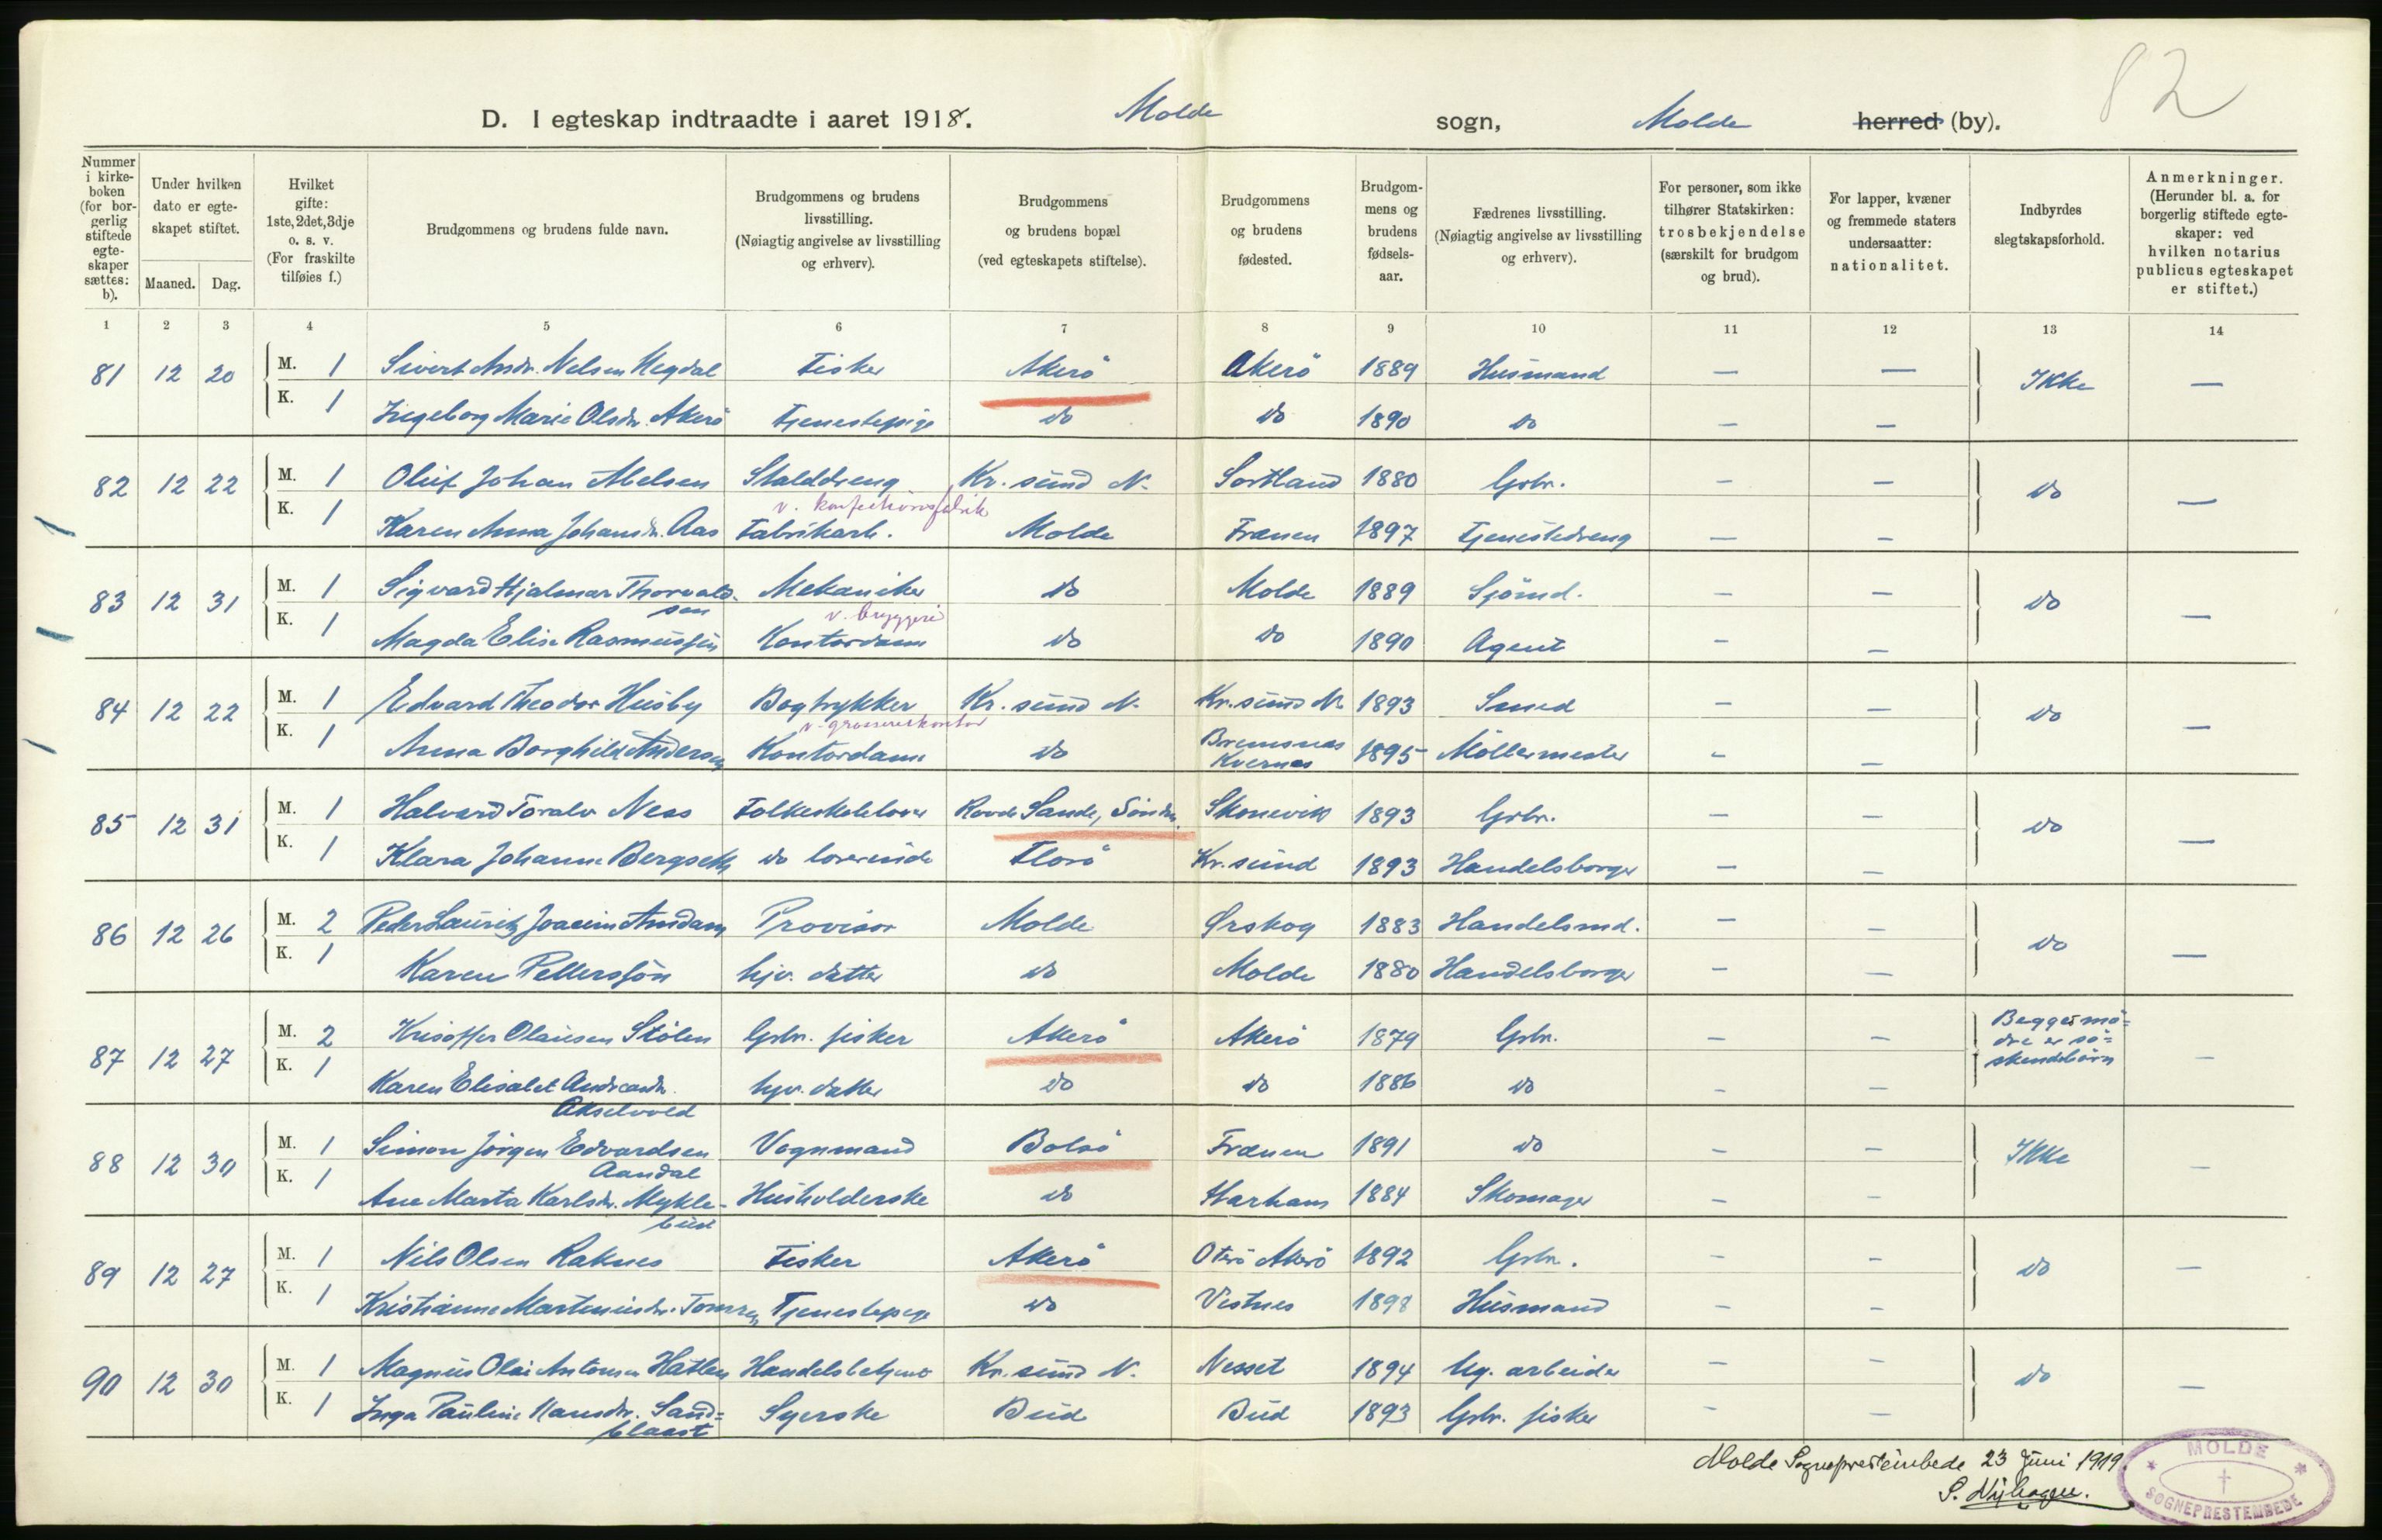 82
D. I egteskap indtraadte i aaret 1918. Molde sogn, Molde herred (by).
Nummer i kirke-boken (for bor-gerlig stiftede egte-skaper sættes: b).
Under hvilken dato er egte-skapet stiftet.
Maaned. Dag.
Hvilket gifte: 1ste, 2det, 3dje o. s. v. (For fraskilte tilføies f.)
Brudgommens og brudens fulde navn.
Brudgommens og brudens livsstilling. (Nøiagtig angivelse av livsstilling og erhverv).
Brudgommens og brudens bopæl (ved egteskapets stiftelse).
Brudgommens og brudens fødested.
Brudgom-mens og brudens fødsels-aar.
Fædrenes livsstilling. (Nøiagtig angivelse av livsstilling og erhverv).
For personer, som ikke tilhører Statskirken: trosbekjendelse (særskilt for brudgom og brud).
For lapper, kvæner og fremmede staters undersaatter: nationalitet.
Indbyrdes slegtskapsforhold.
Anmerkninger. (Herunder bl. a. for borgerlig stiftede egte-skaper: ved hvilken notarius publicus egteskapet er stiftet.)
1 2 3 4 5 6 7 8 9 10 11 12 13 14
81 12 20 M. 1 Sivert Andr. Nelsen Hegdal Fisker Akerö Akerö 1889 Husmand — — Ikke —
K. 1 Ingeborg Marie Olsdr. Akerö Tjenestepige do do 1890 do — —
82 12 22 M. 1 Oluf Johan Melsen Stalddreng Kr.sund N. Sortland 1880 Grbr. — — do —
v. konfectionsfabrik
K. 1 Karen Anna Johansdr. Aas Fabrikarb. Molde Frænen 1897 Tjenestedreng — —
83 12 31 M. 1 Sigvard Hjalmar Thorvald- Mekaniker do Molde 1889 Sjömd. — — do —
sen v. bryggeri
K. 1 Magda Elise Rasmussen Kontordame do do 1890 Agent — —
84 12 22 M. 1 Edvard Theodor Husby Bogtrykker Kr.sund N. Kr.sund N. 1893 Smed — — do —
v. grossererkontor
K. 1 Anna Borghild Andersen Kontordame do Bremsnes Kvernes 1895 Möllermester — —
85 12 31 M. 1 Halvard Toralv Nes Folkeskolelærer Rovde Sande, Söndm. Skonevik 1893 Grbr. — — do —
K. 1 Klara Johanne Bergseth do lærerinde Florö Kr.sund 1893 Handelsborger — —
86 12 26 M. 2 Peder Lauritz Joacim Amdam Provisor Molde Ørskog 1883 Handelsmd. — — do —
K. 1 Karen Pettersson hjv. datter do Molde 1880 Handelsborger — —
87 12 27 M. 2 Kristoffer Olausen Stölen Grbr. fisker Akerö Akerö 1879 Grbr. — — Begges mö=dre er sö=skendebörn —
K. 1 Karen Elisabet Andreasdr. hjv. datter do do 1886 do — —
Akselvold
88 12 30 M. 1 Simon Jörgen Edvardsen Vognmand Bolsö Frænen 1891 do — — Ikke —
Aandal
K. 1 Ane Marta Karlsdr. Mykle- Husholderske do Harhams 1884 Skomager — —
bust
89 12 27 M. 1 Nils Olsen Raknes Fisker Akerö Oterö Akerö 1892 Grbr. — — do —
K. 1 Kristianne Martinusdr. Tomren Tjenestepige do Vestnes 1898 Husmand — —
90 12 30 M. 1 Magnus Olai Antonsen Hatlen Handelsbetjent Kr.sund N. Nesset 1894 Ug. arbeider — — do —
K. 1 Inga Pauline Hansdr. Sand= Syerske Bud Bud 1893 Grbr. fisker — —
blaast
Molde Sogneprestembede 23 Juni 1919.
MOLDE
SOGNEPRESTEMBEDE